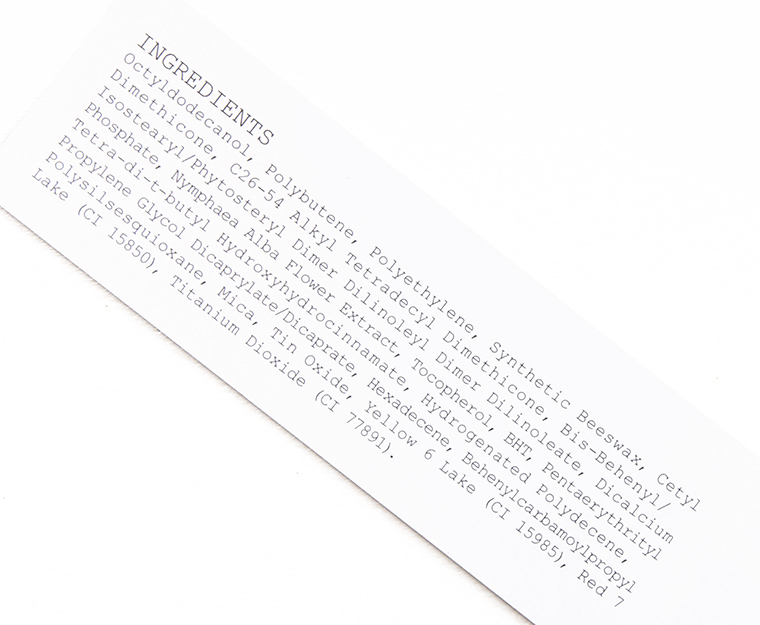 INGREDIENTS
Octyldodecanol, Polybutene, Polyethylene, Synthetic Beeswax, Cetyl
Dimethicone, C26-54 Alkyl Tetradecyl Dimethicone, Bis-Behenyl/
Isostearyl/Phytosteryl Dimer Dilinoleyl Dimer Dilinoleate, Dicalcium
Phosphate, Nymphaea Alba Flower Extract, Tocopherol, BHT, Pentaerythrityl
Tetra-di-t-butyl Hydroxyhydrocinnamate, Hydrogenated Polydecene,
Propylene Glycol Dicaprylate/Dicaprate, Hexadecene, Behenylcarbamoylpropyl
Polysilsesquioxane, Mica, Tin Oxide, Yellow 6 Lake (CI 15985), Red 7
Lake (CI 15850), Titanium Dioxide (CI 77891).